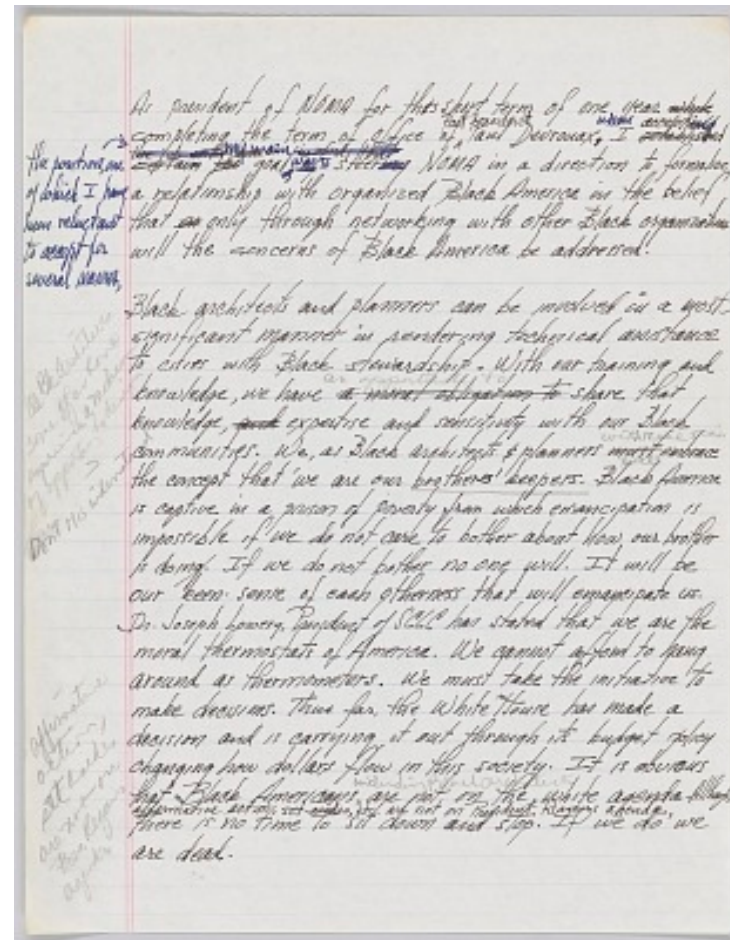 As president of NOMA for this short term of one year
completing the term of office of Paul Devrouax, I
goal was to steer NOMA in a direction to formalize
a relationship with organized Black America in the belief
that only through networking with other Black organizations
will the concerns of Black America be addressed.
the position, one
of which I have
been reluctant
to accept for
several years,
Black architects and planners can be involved in a most
significant manner in rendering technical assistance
to cities with Black stewardship. With our training and
an opportunity to
knowledge, we have a moral obligation to share that
knowledge, expertise and sensitivity with our Black
communities. We, as Black architects & planners must embrace
the concept that we are our brothers' keepers. Black America
is captive in a prison of poverty from which emancipation is
impossible if we do not care to bother about how our brother
is doing. If we do not bother no one will. It will be
our keen sense of each otherness that will emancipate us.
Dr. Joseph Lowery, President of SCLC has stated that we are the
moral thermostats of America. We cannot afford to hang
around as thermometers. We must take the initiative to
make decisions. Thus far, the White House has made a
decision and is carrying it out through its budget policy
changing how dollars flow in this society. It is obvious
that Black Americans are not on the white agenda
affirmative action, set asides, are not on President Reagan's agenda,
there is no time to sit down and stop. If we do we
are dead.
affirmative
action
set asides
are
agenda